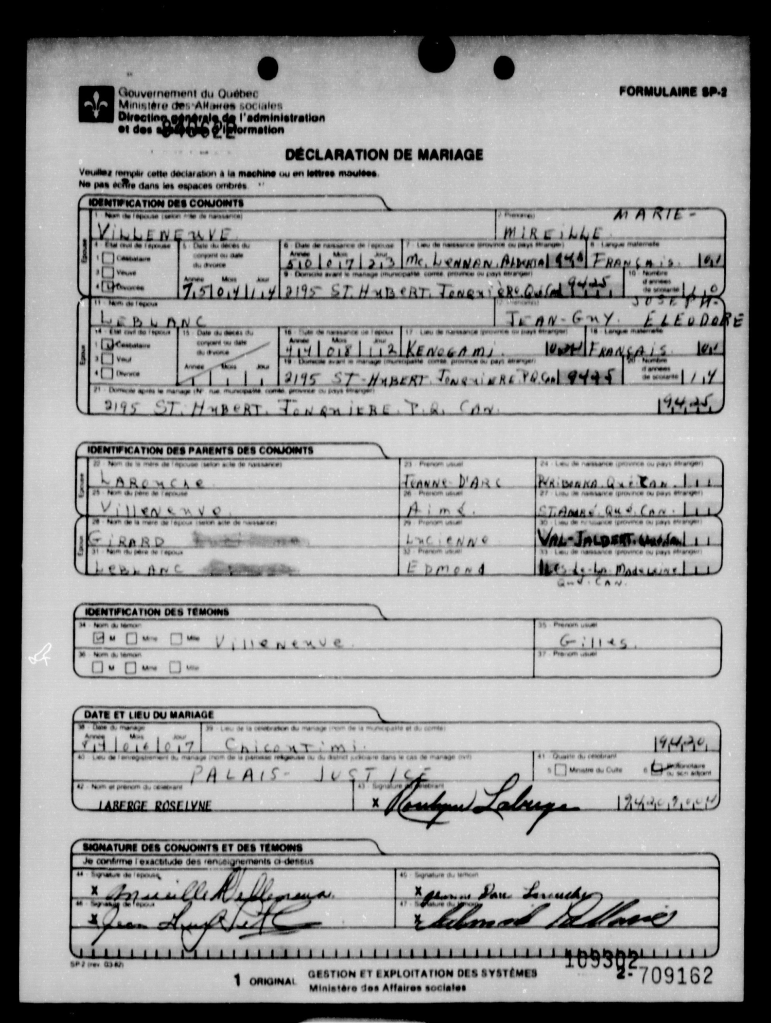 Gouvernement du Québec
FORMULAIRE SP-2
Ministère des Affaires sociales
Direction générale de l'administration
et des systèmes d'information
DÉCLARATION DE MARIAGE
Veuillez remplir cette déclaration à la machine ou en lettres moulées.
Ne pas écrire dans les espaces ombrés.
IDENTIFICATION DES CONJOINTS
1 - Nom de l'épouse (selon acte de naissance) 2 - Prénom(s) MARIE-
VILLENEUVE MIREILLE
4 - État civil de l'épouse 5 - Date du décès du conjoint ou date du divorce 6 - Date de naissance de l'épouse 7 - Lieu de naissance (province ou pays étranger) 8 - Langue maternelle
1 Célibataire Année Mois Jour
50 07 23 Mc. LENNAN. ALBERTA FRANÇAIS.
3 Veuve 9 - Domicile avant le mariage (municipalité, comté, province ou pays étranger) 10 - Nombre d'années de scolarité
4 Divorcée 75 04 14 2195 ST. HUBERT. JONQUIÈRE. Qué Can 9425 10
11 - Nom de l'époux JOSEPH-
LEBLANC JEAN-GUY ELEODORE
14 - État civil de l'époux 15 - Date du décès du conjoint ou date du divorce 16 - Date de naissance de l'époux 17 - Lieu de naissance (province ou pays étranger) 18 - Langue maternelle
1 Célibataire Année Mois Jour
44 08 12 KENOGAMI. FRANÇAIS
3 Veuf 19 - Domicile avant le mariage (municipalité, comté, province ou pays étranger) 20 - Nombre d'années de scolarité
4 Divorcé Année Mois Jour 2195 ST-HUBERT. JONQUIERE. P.Q. Can 9425 14
21 - Domicile après le mariage (No, rue, municipalité, comté, province ou pays étranger)
2195 ST. HUBERT. JONQUIERE. P.Q. CAN. 9425
IDENTIFICATION DES PARENTS DES CONJOINTS
22 - Nom de la mère de l'épouse (selon acte de naissance) 23 - Prénom usuel 24 - Lieu de naissance (province ou pays étranger)
LAROUCHE JEANNE D'ARC PERIBONKA. Qué. CAN.
25 - Nom du père de l'épouse 26 - Prénom usuel 27 - Lieu de naissance (province ou pays étranger)
Villeneuve. Aimé. ST. AMBRé. Qué. CAN.
28 - Nom de la mère de l'époux (selon acte de naissance) 29 - Prénom usuel 30 - Lieu de naissance (province ou pays étranger)
GIRARD LUCIENNE VAL-JALBERT.
31 - Nom du père de l'époux 32 - Prénom usuel 33 - Lieu de naissance (province ou pays étranger)
LEBLANC EDMOND ILES-de-LA-Madeleine
Qué. CAN.
IDENTIFICATION DES TÉMOINS
34 - Nom du témoin 35 - Prénom usuel
M Mme Mlle Villeneuve. Gilles.
36 - Nom du témoin 37 - Prénom usuel
M Mme Mlle
DATE ET LIEU DU MARIAGE
38 - Date du mariage 39 - Lieu de la célébration du mariage (nom de la municipalité et du comté)
Année Mois Jour
84 06 07 Chicoutimi. 9420
40 - Lieu de l'enregistrement du mariage (nom de la paroisse religieuse ou du district judiciaire dans le cas de mariage civil) 41 - Qualité du célébrant
PALAIS-JUSTICE 5 Ministre du Culte 6 Protonotaire ou son adjoint
42 - Nom et prénom du célébrant 43 - Signature du célébrant
LABERGE ROSELYNE X Roselyne Laberge
SIGNATURE DES CONJOINTS ET DES TÉMOINS
Je confirme l'exactitude des renseignements ci-dessus
44 - Signature de l'épouse 45 - Signature du témoin
X Mireille Villeneuve X Jeanne Darc Larouche
46 - Signature de l'époux 47 - Signature du témoin
X X
SP-2 (rev. 03-82)
109302
1 ORIGINAL GESTION ET EXPLOITATION DES SYSTÈMES 2-709162
Ministère des Affaires sociales